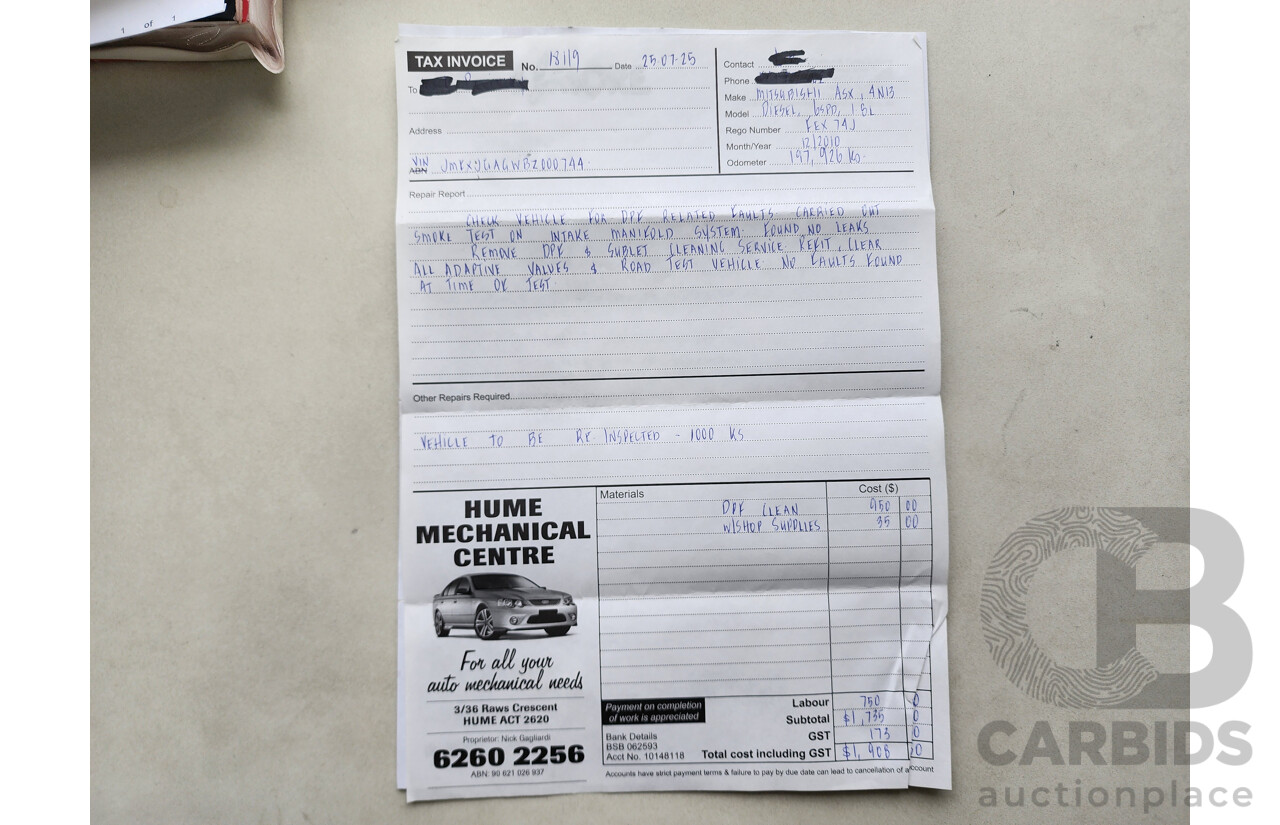 1 of 1
TAX INVOICE No. 18119 Date 25.07.25
To
Address
VIN
ABN
Contact
Phone
Make MITSUBISHI ASX, 4N13
Model DIESEL, 6SPD, 1.8L
Rego Number
Month/Year 12/2010
Odometer 197,926 Ks.
Repair Report
CHECK VEHICLE FOR DPF RELATED FAULTS CARRIED OUT
SMOKE TEST ON INTAKE MANIFOLD SYSTEM. FOUND NO LEAKS
REMOVE DPF & SUBLET CLEANING SERVICE REFIT, CLEAR
ALL ADAPTIVE VALUES & ROAD TEST VEHICLE NO FAULTS FOUND
AT TIME OF TEST
Other Repairs Required
VEHICLE TO BE RE INSPECTED - 1000 KS
HUME
MECHANICAL
CENTRE
For all your
auto mechanical needs
3/36 Raws Crescent
HUME ACT 2620
Proprietor: Nick Gagliardi
6260 2256
ABN: 90 621 026 937
Materials Cost ($)
DPF CLEAN 950 00
W/SHOP SUPPLIES 35 00
Payment on completion
of work is appreciated
Bank Details
BSB 062593
Acct No. 10148118
Labour 750
Subtotal $1,735
GST 173
Total cost including GST $1,908
Accounts have strict payment terms & failure to pay by due date can lead to cancellation of account
CB
CARBIDS
auctionplace